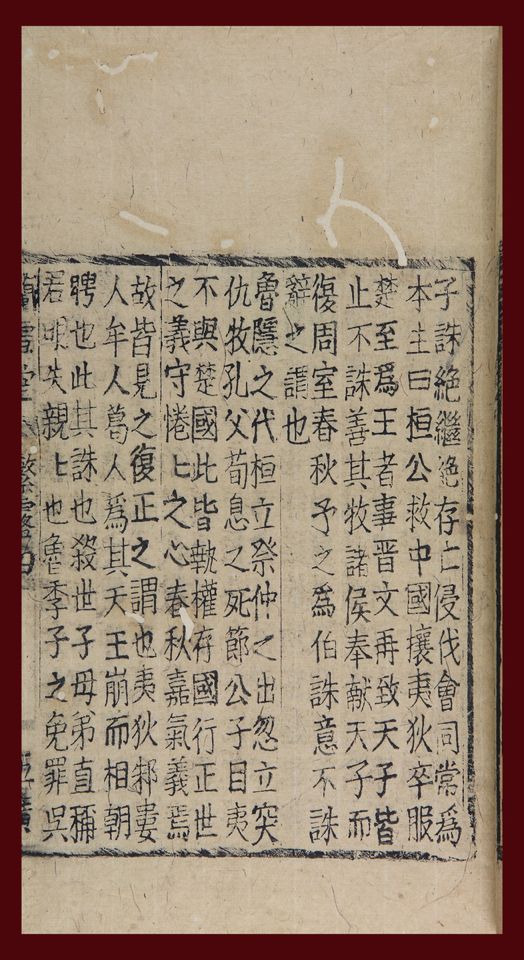 子誅絶繼絶存亡侵伐會同常爲
本主曰桓公救中國攘夷狄卒服
楚至爲王者事晋文再致天子皆
止不誅善其牧諸侯奉献天子而
復周室春秋予之爲伯誅意不誅
辭之謂也
魯隱之代桓立祭仲之出忽立突
仇牧孔父荀息之死節公子目夷
不與楚國此皆執權存國行正世
之義守惓匕之心春秋嘉氣義焉
故皆見之復正之謂也夷狄邾婁
人牟人葛人爲其天王崩而相朝
聘也此其誅也殺世子母弟直稱
君明失親匕也魯季子之免罪吳